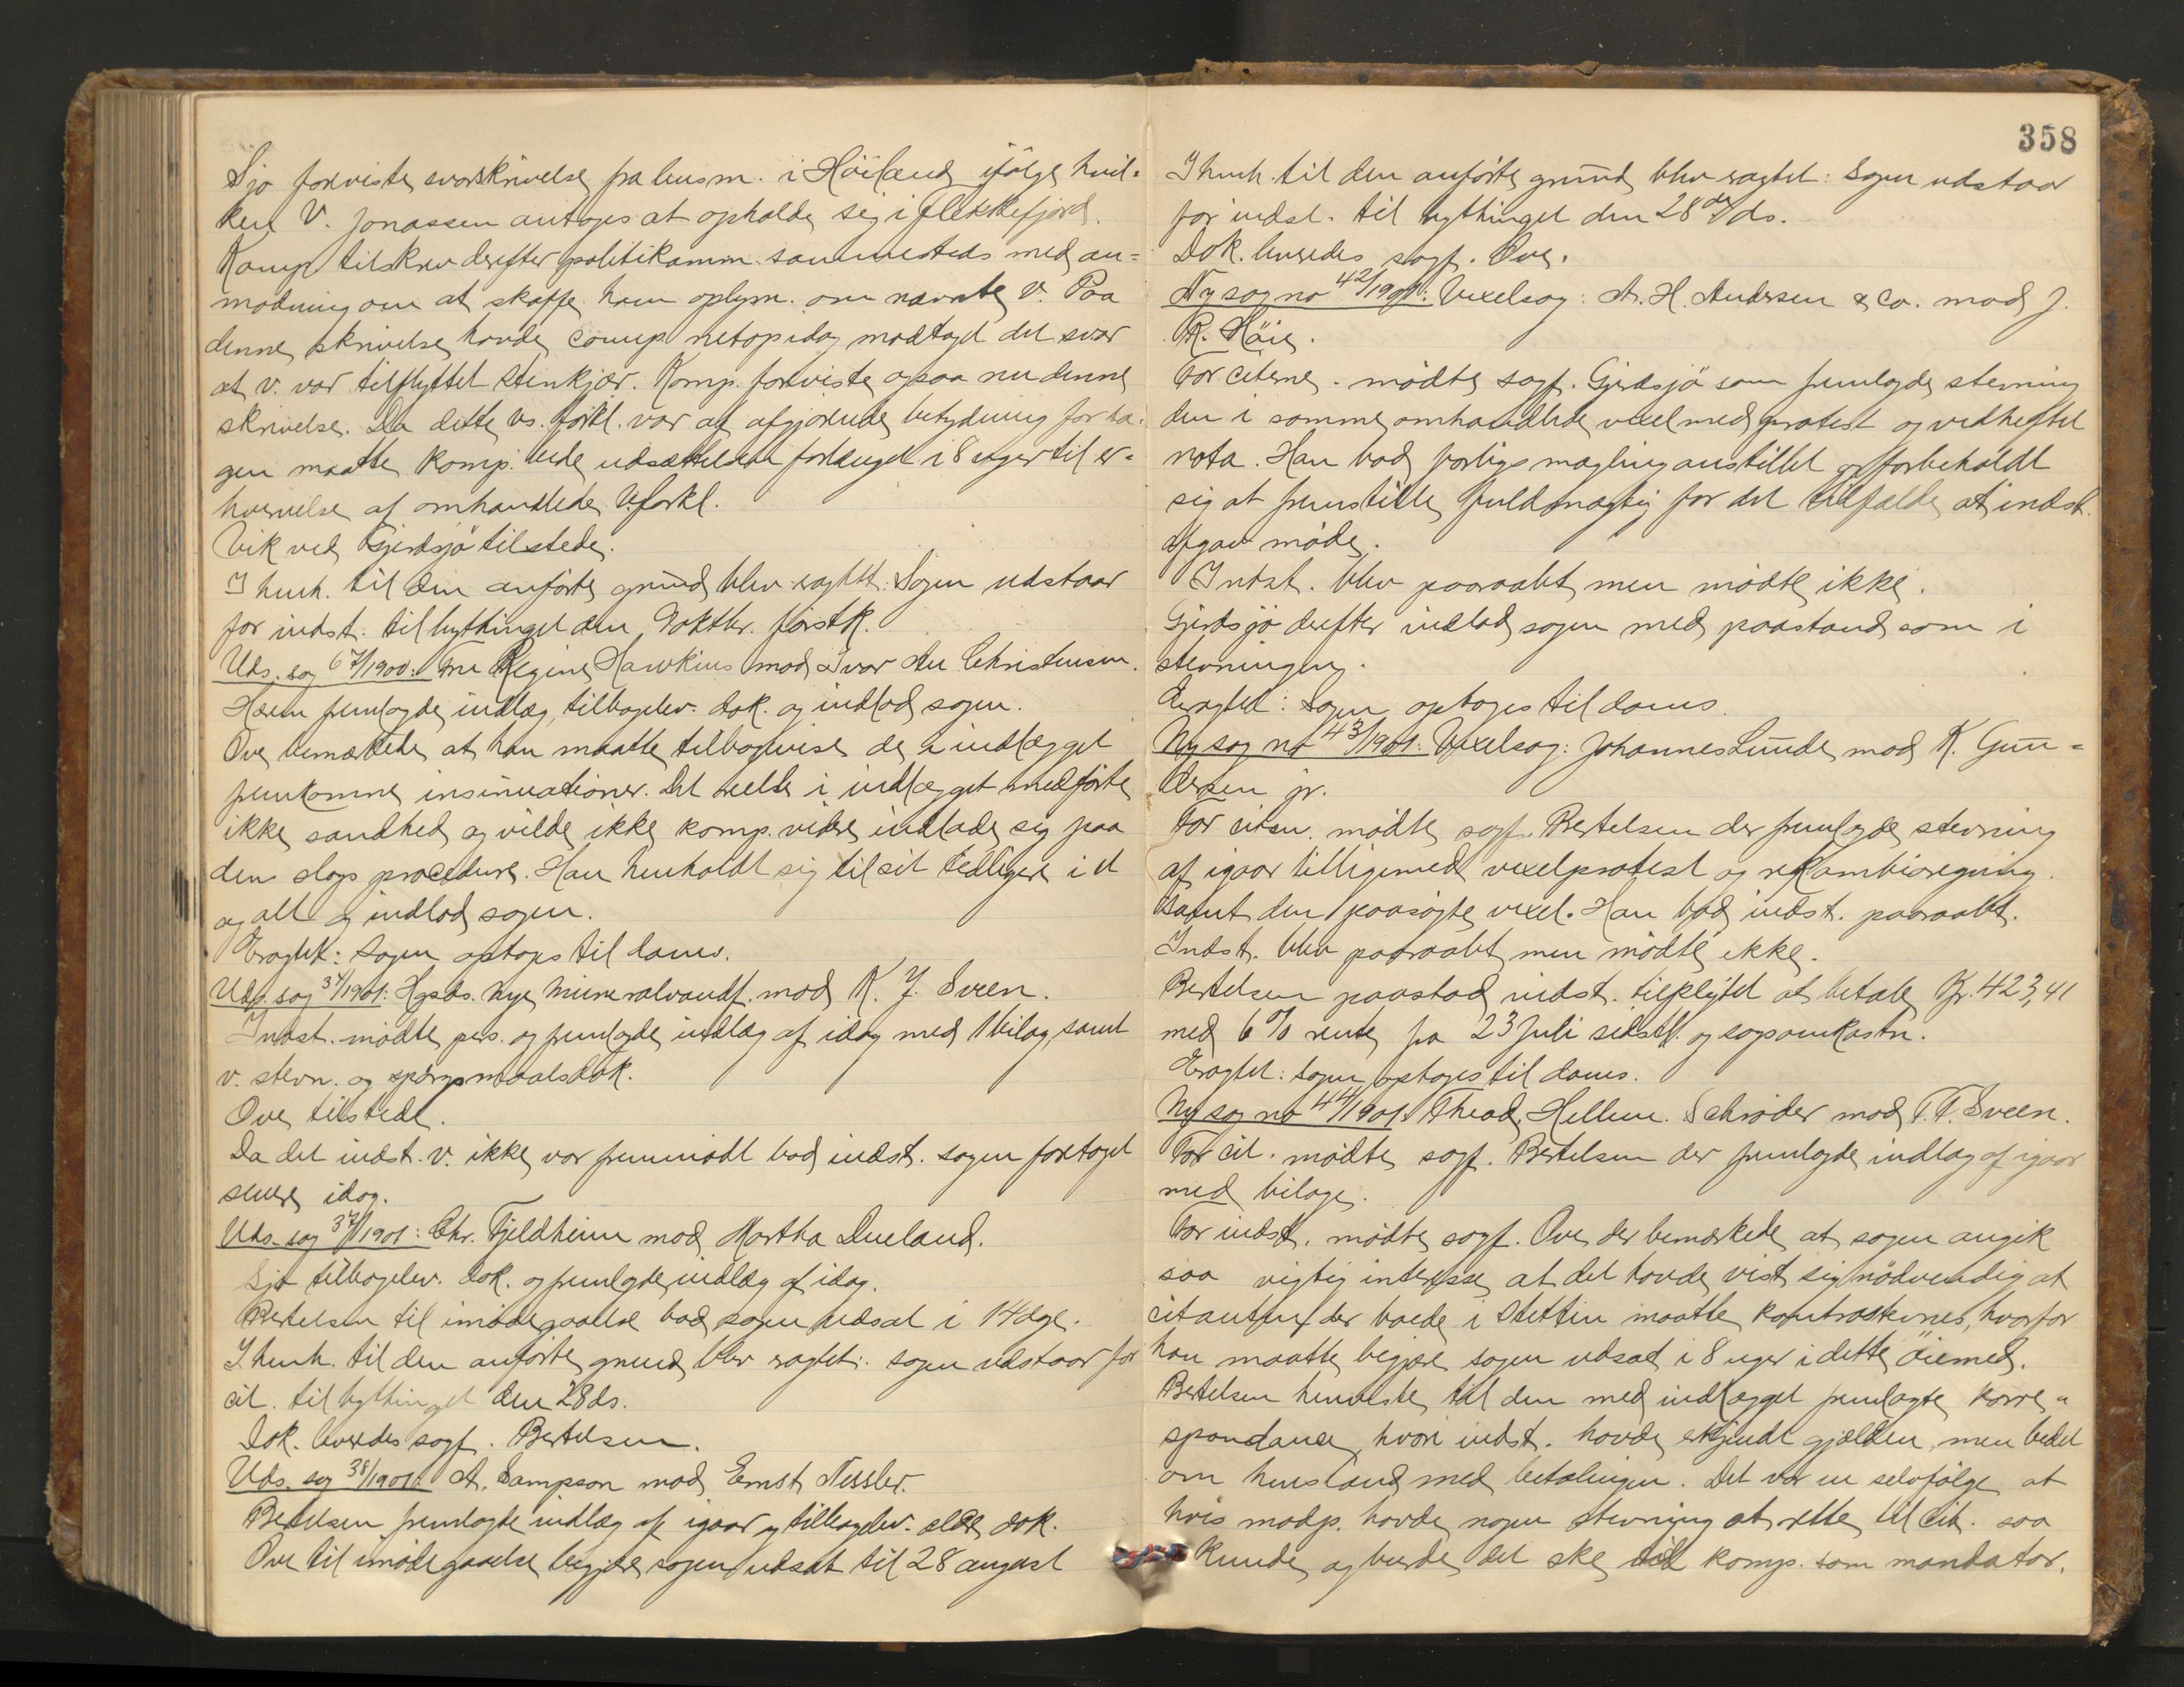 Sjø foreviste svarskrivelse fra lensm. i Höiland ifölge hvil-
ken V. Jonassen antoges at opholde sig i Flekkefjord.
Komp. tilskrev derefter politikamm. sammesteds med an-
modning om at skaffe ham oplysn. om nævnte V. Paa
denne skrivelse havde comp. netop idag modtaget det svar
at V. var tilflyttet Stenkjær. Komp. foreviste ogsaa nu denne
skrivelse. Da dette vs. forkl. var af afgjörende betydning for sa-
gen maatte komp. bede udsættelsen forlænget i 8 uger til er-
hvervelse af omhandlede v.forkl.
Vik ved Gjerdsjö tilstede.
I henh. til den anförte grund blev eragtet: Sagen udstaar
for indst. til bythinget den 9 oktbr. förstk.
Uds. sag 67/1900: Fru Regine Hawkins mod Ivar Au Christensen.
Hærem fremlagde indlæg, tilbagelev. dok. og indlod sagen.
Ove bemærkede at han maatte tilbagevise de i indlægget
fremkomne insinuationer. Det reelle i indlægget medförte
ikke sandhed og vilde ikke komp. videre indlade sig paa
den slags procedure. Han henholdt sig til sit tidligere i et
og alt og indlod sagen.
Eragtet: Sagen optages til doms.
Uds. sag 34/1901: Hgsds. nye Mineralvandf. mod K. J. Sveen.
Indst. mödte pers. og fremlagde indlæg af idag med 1 bilag, samt
v. stevn. og spörgsmaalsdok.
Ove tilstede.
Da det indst. v. ikke var fremmödt bad indst. sagen foretaget
senere idag.
Uds. sag 37/1901: Chr. Fjeldheim mod Martha Dueland.
Sjø tilbagelev. dok. og fremlagde indlæg af idag.
Bertelsen til imödegaaelse bad sagen udsat i 14 dage.
I henh. til den anförte grund blev eragtet: sagen udstaar for
cit. til bythinget den 28 ds.
Dok. leveredes sagf. Bertelsen.
Uds. sag 38/1901: A. Sampson mod Ernst Nessler.
Bertelsen fremlagde indlæg af igaar og tilbagelev. eldre dok.
Ove til imödegaaelse begjæred sagen udsat til 28 august
358
I henh. til den anförte grund blev eragtet: Sagen udstaar
for indst. til bythinget den 28de ds.
Dok. leveredes sagf. Ove.
Ny sag no 42/1901: Vexelsag: A. H. Andersen & Co. mod J.
R. Höie.
For citerne mödte sagf. Gjerdsjö som fremlagde stevning
den i samme omhandlede vexel med protest og vedheftet
nota. Han bad forligsmægling anstillet og forbeholdt
sig at fremstille fuldmægtig for det tilfælde at indst.
afgav möde.
Indst. blev paaraabt men mödte ikke.
Gjerdsjö derefter indlod sagen med paastand som i
stevningen.
Eragtet: Sagen optages til doms.
Ny sag no 43/1901: Vexelsag: Johannes Lunde mod K. Gun-
dersen jr.
For citen. mödte sagf. Bertelsen der fremlagde stevning
af igaar tilligemed vexelprotest og rekambioregning.
samt den paasögte vexel. Han bad indst. paaraabt.
Indst. blev paaraabt men mödte ikke.
Bertelsen paastod indst. tilpligtet at betale Kr. 423,41
med 6% rente fra 23 Juli sidstl. og sagsomkostn.
Eragtet: Sagen optages til doms.
Ny sag no 44/1901: Theod. Hellm. Schröder mod T. T. Sveen.
For cit. mödte sagf. Bertelsen der fremlagde indlæg af igaar
med bilage.
For indst. mödte sagf. Ove der bemærkede at sagen angik
saa vigtig interesse at det havde vist sig nödvendig at
citanten der boede i Stettin maatte kontrastevnes, hvorfor
han maatte begjære sagen udsat i 8 uger i dette öiemed.
Bertelsen henviste til den med indlægget fremlagte korre-
spondance, hvori indst. havde erkjendt gjælden men bedet
om henstand med betalingen. Det var en selvfölge at
hvis modp. havde nogen stevning at rette til cit. saa
kunde og burde det ske til komp. som mandatar.